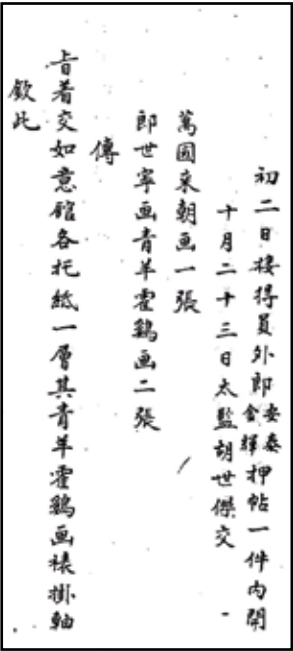 初二日接得員外郎安泰金輝押帖一件內開
十月二十三日太監胡世傑交
萬國來朝画一張
郎世寧画青羊霍鷄画二張
傳
旨着交如意館各托紙一層其青羊霍鷄画裱掛軸
欽此